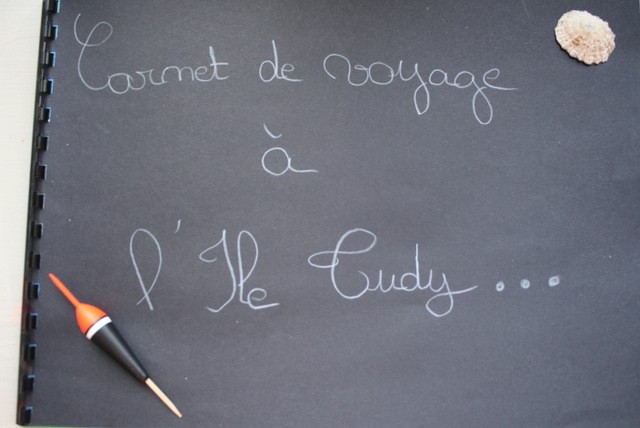 Carnet de voyage
à
l'Ile Tudy...